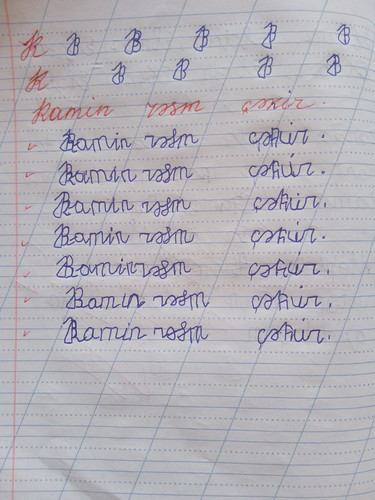 R R R R R R
R R R R R
Ramin rəsm çəkir.
Ramin rəsm çəkir.
Ramin rəsm çəkir.
Ramin rəsm çəkir.
Ramin rəsm çəkir.
Ramin rəsm çəkir.
Ramin rəsm çəkir.
Ramin rəsm çəkir.